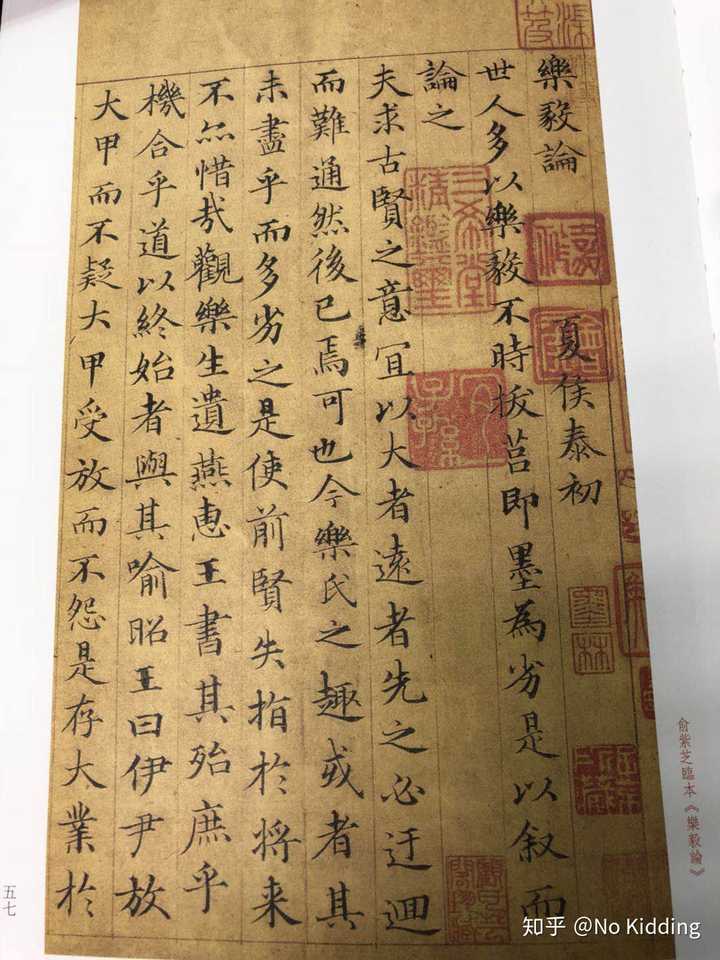 樂毅論 夏侯泰初
世人多以樂毅不時拔莒即墨為劣是以叙而
論之
夫求古賢之意宜以大者遠者先之必迂迴
而難通然後已焉可也今樂氏之趣或者其
未盡乎而多劣之是使前賢失指於将来
不亦惜哉觀樂生遺燕惠王書其殆庶乎
機合乎道以終始者與其喻昭王曰伊尹放
大甲而不疑大甲受放而不怨是存大業於
俞紫芝臨本《樂毅論》
五七
知乎 @No Kidding